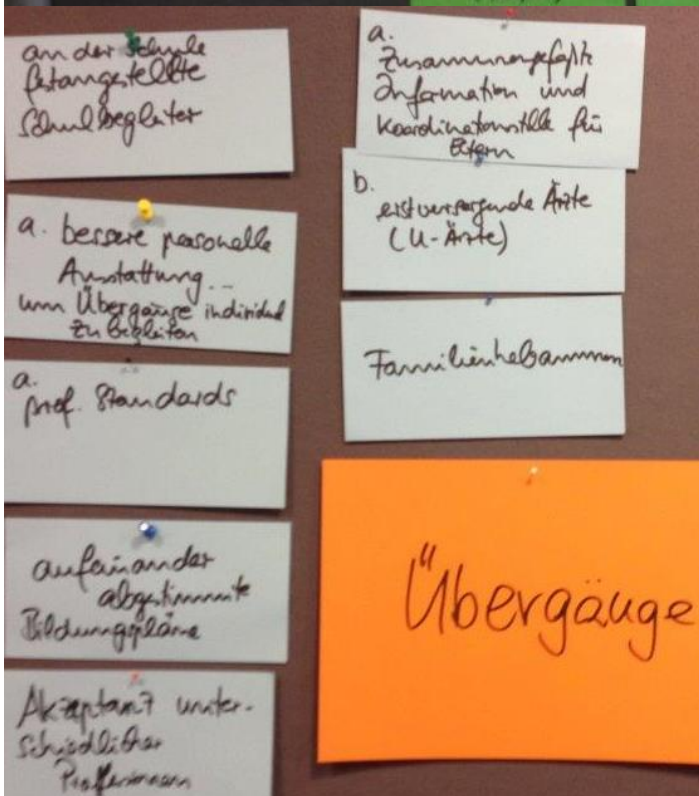 an der Schule
festangestellte
Schulbegleiter
a. bessere personelle
Ausstattung...
um Übergänge individuell
zu begleiten
a.
prof. Standards
aufeinander
abgestimmte
Bildungspläne
Akzeptanz unter-
schiedlicher
Professionen
a.
Zusammengefaßte
Information und
Koordinationsstelle für
Eltern
b.
erstversorgende Ärzte
(U-Ärzte)
Familienhebammen
Übergänge